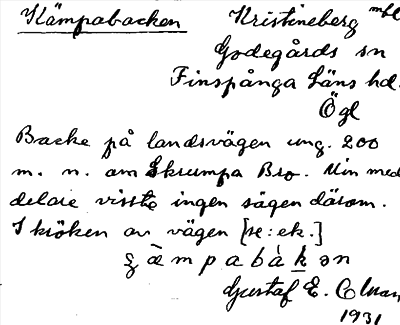 Kämpabacken Kristineberg mfl
Godegårds sn
Finspånga Läns hd.
Ögl
Backe på landsvägen ung. 200
m. n. om Skrumpa Bro. Min med
delare visste ingen sägen därom.
I kröken av vägen [se: ek.]
Gustaf E.
1931